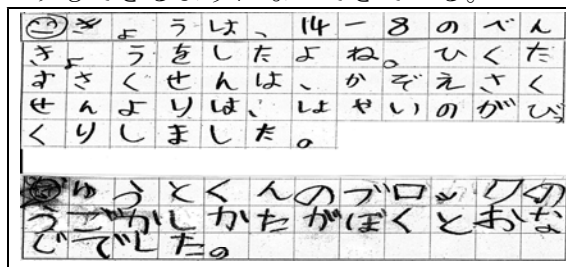 きょうは、14-8のべん
きょうをしたよね。ひくた
すさくせんは、かぞえさく
せんよりは、はやいのがびっ
くりしました。
ゆうとくんのブロックの
うごかしかたがぼくとおな
じでした。